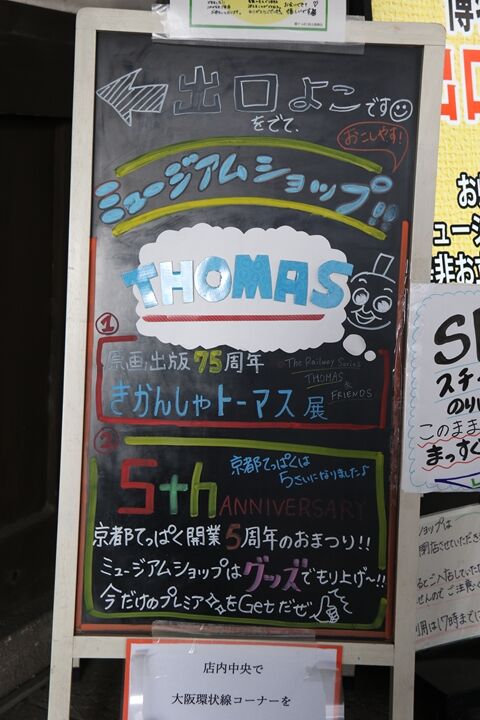 出口よこです
をでて、
おこしやす!
ミュージアムショップ!!
THOMAS
①
原画;出版75周年
The Railway Series
THOMAS
&
FRIENDS
きかんしゃトーマス展
②
京都てっぱくは
5さいになりました♪
5th ANNIVERSARY
京都てっぱく開業5周年のおまつり!!
ミュージアムショップはグッズでもり上げ〜!!
今だけのプレミアをGetだぜ
店内中央で
大阪環状線コーナーを
博
出口
お
ュージ
是非お立
S
スチ
のり
このまま
まっすぐ
ショップは
閉店させていただき
るとご入店していただ
せんので ご注意く
利用は17時までに